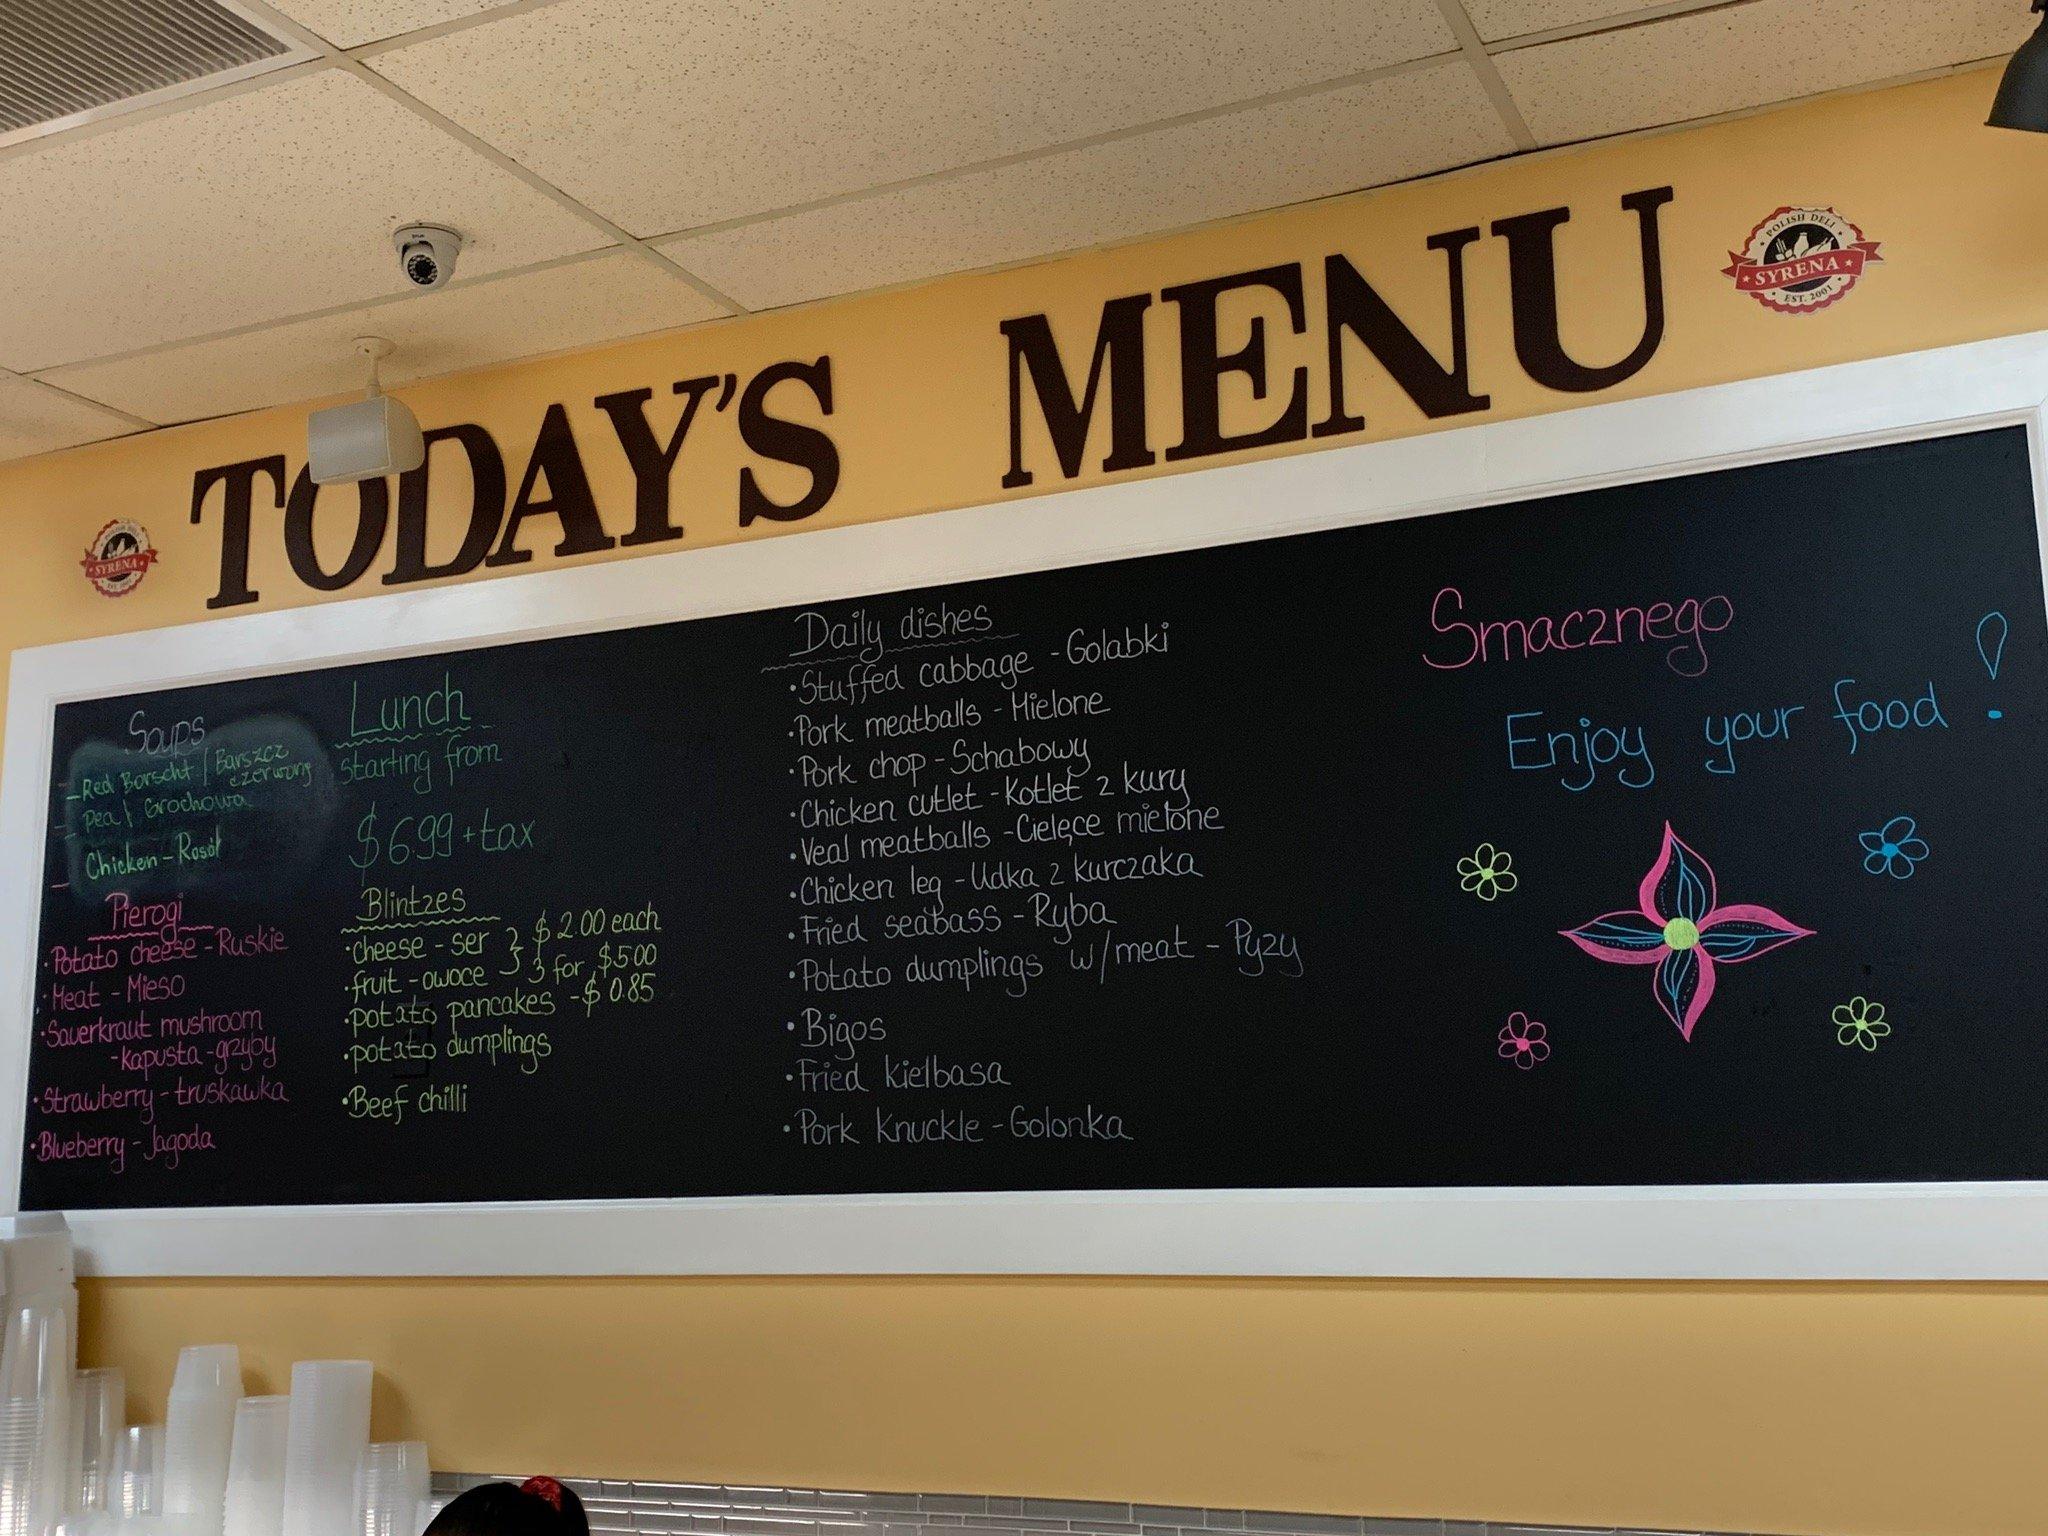 TODAY'S MENU
POLISH DELI
SYRENA
EST. 2001
SYRENA
Soups
- Red Borscht / Barszcz
czerwony
- Pea / Grochowa
Chicken - Rosół
Pierogi
• Potato cheese - Ruskie
• Meat - Mieso
• Sauerkraut mushroom
- kapusta - grzyby
• Strawberry - truskawka
• Blueberry - Jagoda
Lunch
starting from
$6.99 + tax
Blintzes
• cheese - ser } $2.00 each
• fruit - owoce } 3 for $5.00
• potato pancakes - $0.85
• potato dumplings
• Beef chilli
Daily dishes
• Stuffed cabbage - Golabki
• Pork meatballs - Mielone
• Pork chop - Schabowy
• Chicken cutlet - Kotlet z kury
• Veal meatballs - Cielęce mielone
• Chicken leg - Udka z kurczaka
• Fried seabass - Ryba
• Potato dumplings w/meat - Pyzy
• Bigos
• Fried kielbasa
• Pork Knuckle - Golonka
Smacznego
Enjoy your food!